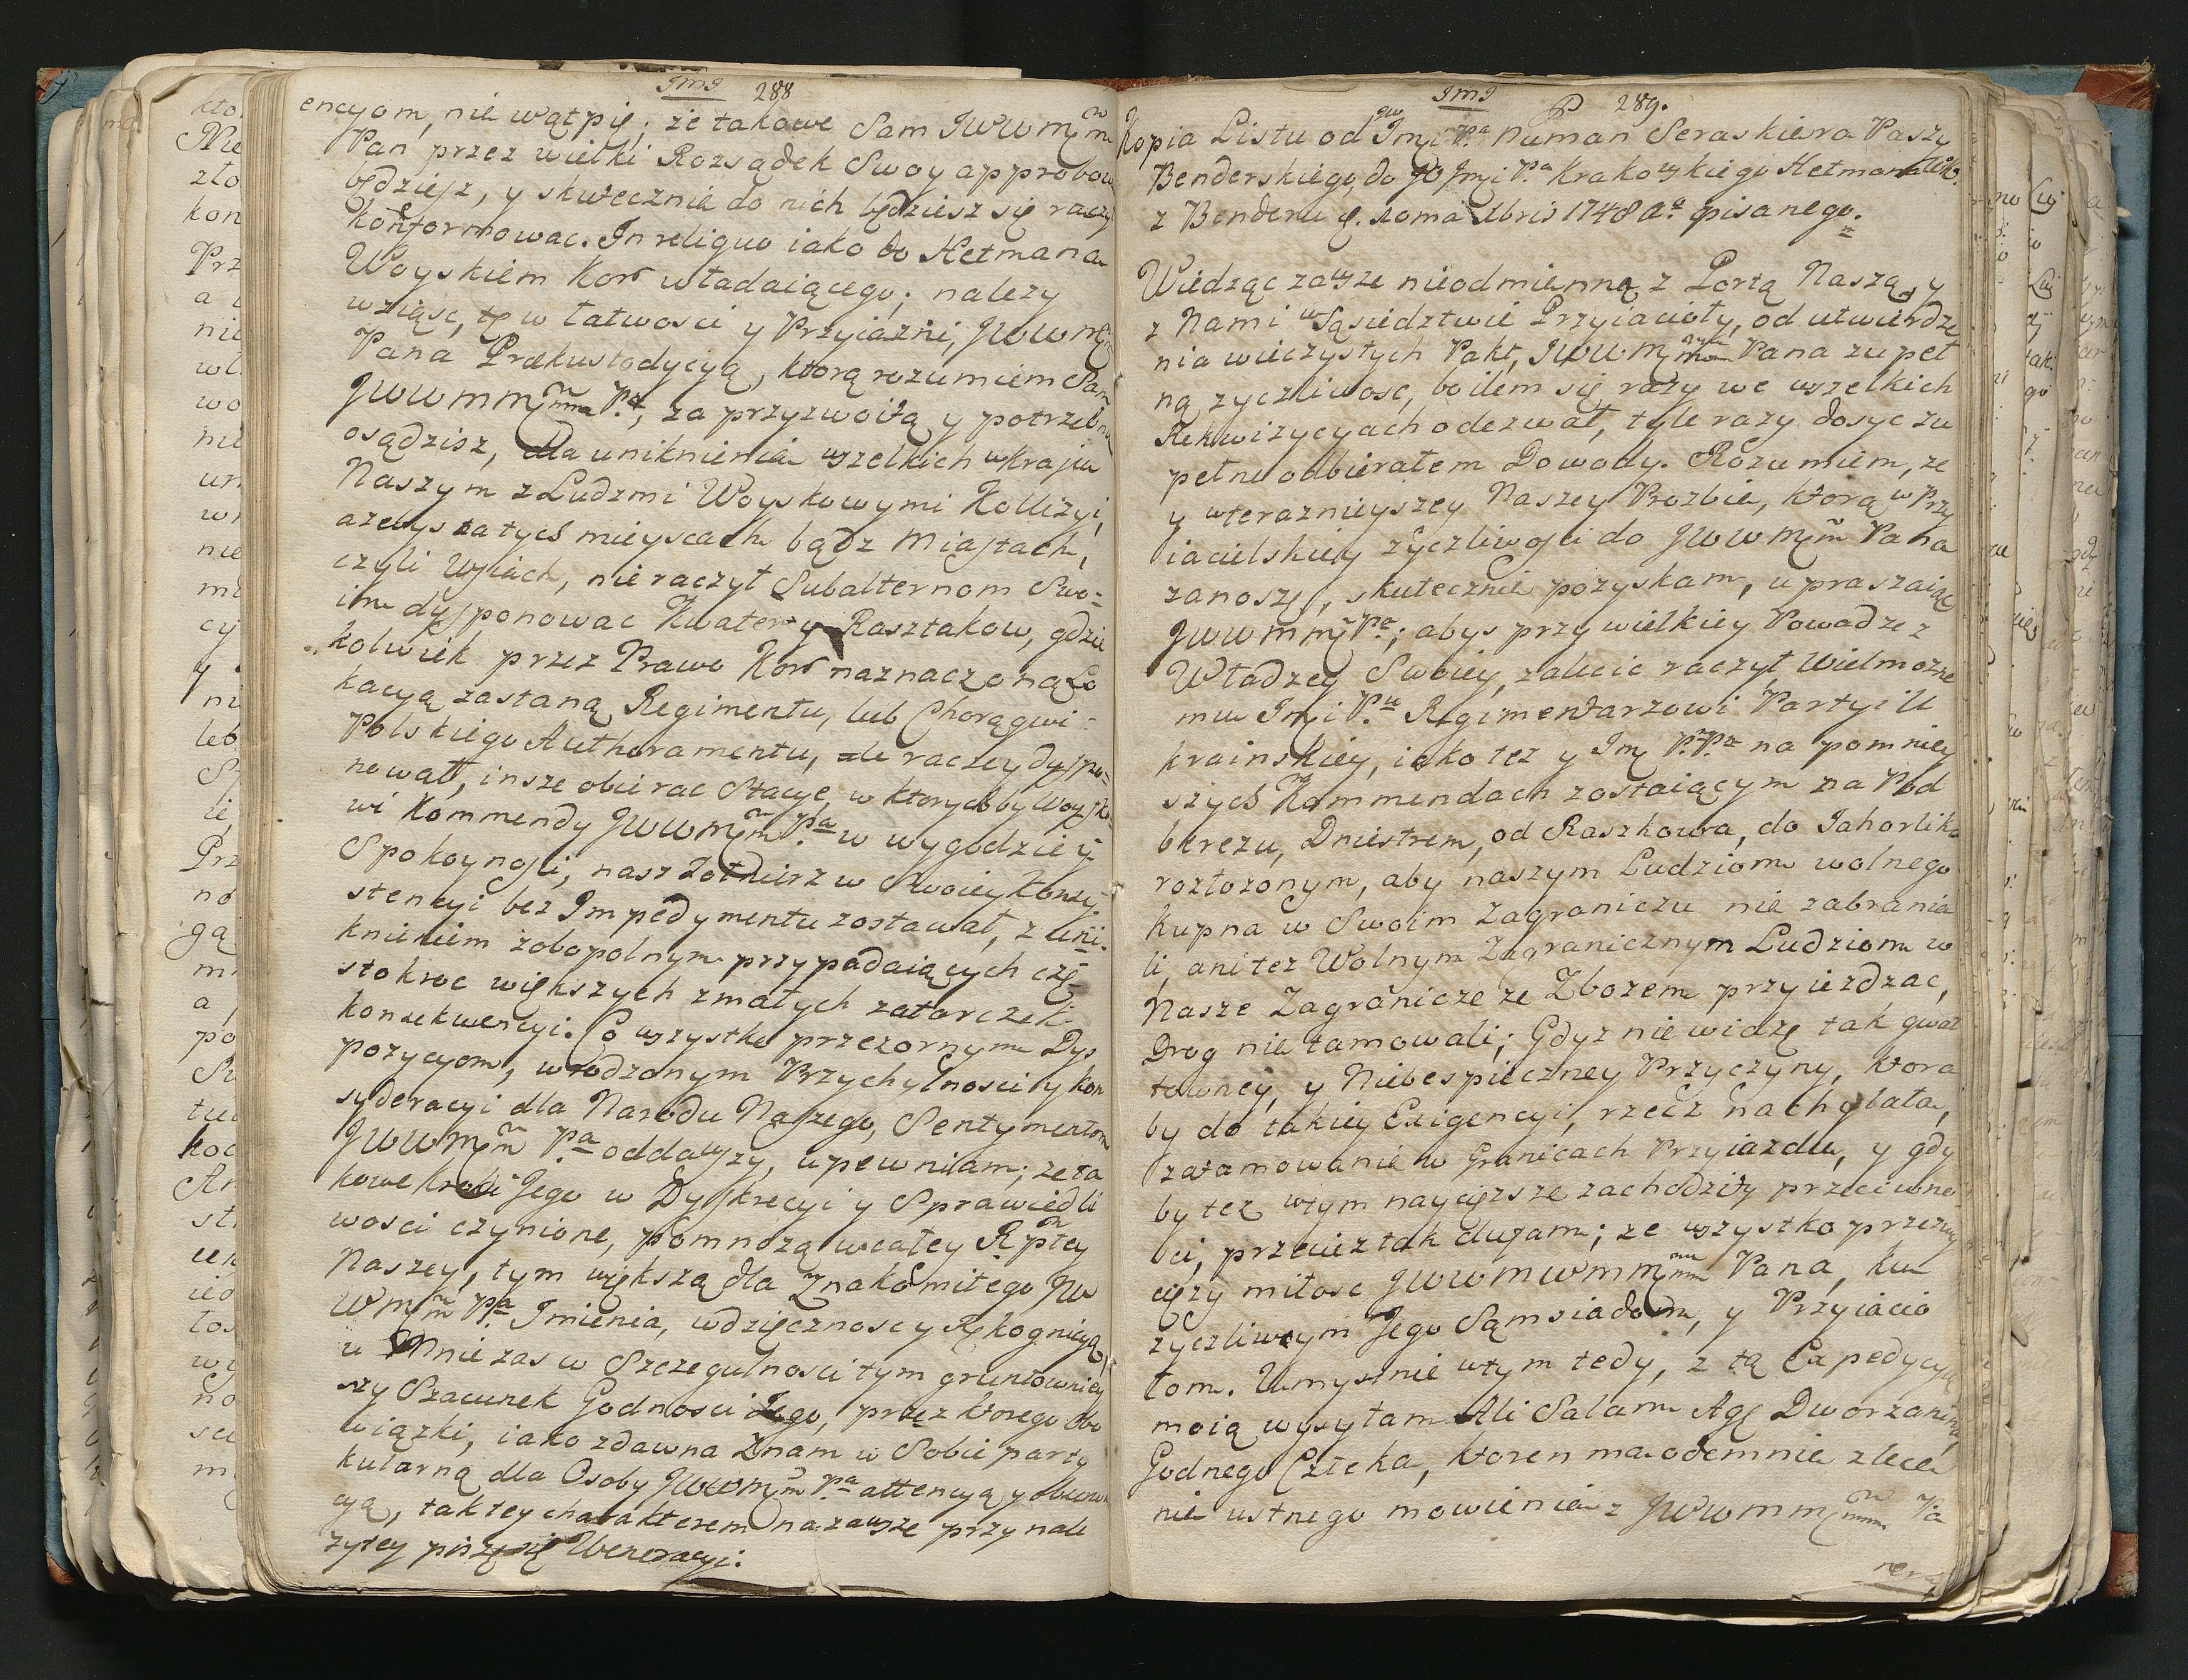 JMJ 288
encyom, nie wątpię; że takowe Sam JWWMMm
Pan przez wielki Rozsądek Swoy approbow
będziesz, y skutecznie do nich będziesz się raczył
konformowac. In reliquo iako do Hetmana
Woyskiem Kor władaiącego; nalezy
wziąsc, w łatwosci y Przyiazni, JWWMM
Pana Prækustodycyą, ktorą rozumiem Sam
JWWMMmm Pa, za przyzwoitą y potrzebną
osądzisz, dla uniknienia wszelkich w Kraju
Naszym z Ludzmi Woyskowymi Kollizyi,
azebys na tych mieyscach bądz Miastach,
czyli Wsiach, nie raczył Subalternom Swo=
im dysponowac Kwater y Rasztakow, gdzie
kolwiek przez Prawo Kor naznaczoną Lo
kacyą zastaną Regimentu, lub Chorągwi
Polskiego Authoramentu, ale raczey dyspo=
nował, insze obierac Stacye, w ktorych by Woysko=
wi Kommendy JWWMMm Pa w wygodzie y
Spokoynosci, nasz Zołnierz w Swoiey Konzy
stencyi bez Impedymentu zostawał, z uni=
knieniem zobopolnym przypadaiących czę
stokroc większych z małych zatarczek
konsekwencyi. Co wszystko przezornym Dys
pozycyom, wrodzonym Przychylnosci y kon
syderacyi dla Narodu Naszego, Sentymentom
JWWMMm Pa oddawszy, upewniam; ze ta
kowe kroki Jego w Dyskrecyi y Sprawiedli
wosci czynione, pomnozą w całey Rptey
Naszey, tym większą dla Znakomitego JW
WMMm Pa Imienia, wdzięcznosc y Rekognicyą,
u Mnie zas w Szczegulnosci tym gruntowniey
szy Szacunek Godnosci Jego, przez ktorego obo
wiązki, iako zdawna znam w Sobie party
kularną dla Osoby JWWMMm Pa attencyą y obserwan
cyą, tak tey charakterem na zawsze przy nale
zytey piszę się Weneracyi.
JMJ 289.
Kopia Listu od JW Jmci Pa Numan Seraskiera Paszy
Benderskiego, do JW Jmci Pa Krakowskiego Hetmana Wk.
z Benderu d. 20ma Xbris 1748 Ao pisanego.
Wiedząc zawsze nieodmienną z Portą Naszą, y
z Nami w Sąsiedztwie Przyiacioły, od utwierdze
nia wieczystych Pakt, JWWMMm Pana zupeł
ną zyczliwosc, bo ilem się razy we wszelkich
Rekwizycyach odezwał, tyle razy dosyc zu
pełne odbierałem Dowody. Rozumiem, ze
y w terazniyszey Naszey Prozbie, ktorą w Przy
iacielskiey zyczliwosci do JWWMMm Pana
zanoszę, skutecznie pozyskam, upraszaiąc
JWWMMm Pa; abys przy wielkiey Powadze z
Władzey Swoiey, zalecic raczył, Wielmozne
mu Jmci Pu Regimentarzowi Partyi U
krainskiey, iako tez y Jm PPm na pomniey
szych Kommendach zostaiącym na Pod
berezu, Dniestrem, od Raszkowa, do Jahorlika
rozłozonym, aby naszym Ludziom wolnego
kupna w Swoim Zagraniczu nie zabrania
li, ani tez Wolnym Zagranicznym Ludziom w
Nasze Zagranicze ze Zbozem przyiezdzac,
Drog nie tamowali; Gdyz nie widzę tak gwał
towney, y Niebespieczney Przyczyny, ktora
by do takiey Exigencyi, rzecz nachylała,
zatamowanie w Granicach Przyiazdu, y gdy
by tez w tym naycięzsze zachodziły przeciwno
sci, przeciez tak dufam; ze wszystko przezwy
cięzy miłosc JWWMWMMmm Pana, ku
zyczliwym Jego Sąmsiadom, y Przyiacio
łom. Umyslnie w tym tedy, z tą Expedycyą
moią wysyłam Ali Salam Agę Dworzanina,
Godnego Człeka, ktoren ma odemnie zlece
nie ustnego mowienia z JWWMMmm Pa
nem,